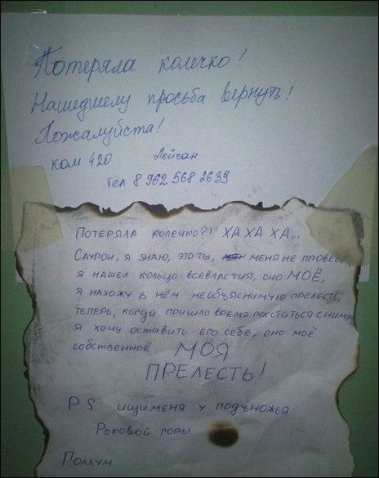 Потеряла колечко!
Нашедшему просьба вернуть!
Пожалуйста!
ком 420 Лейсан
тел 8 962 568 2639
ПОТЕРЯЛА КОЛЕЧКО?! ХА ХА ХА...
САУРОН, Я ЗНАЮ, ЭТО ТЫ, МЕНЯ НЕ ПРОВЕС
Я НАШЕЛ КОЛЬЦО ВСЕВЛАСТИЯ, ОНО МОЁ,
Я НАХОЖУ В НЁМ НЕОБЪЯСНИМУЮ ПРЕЛЕСТЬ,
ТЕПЕРЬ, КОГДА ПРИШЛО ВРЕМЯ РАССТАТЬСЯ С НИМ,
Я ХОЧУ ОСТАВИТЬ ЕГО СЕБЕ, ОНО МОЁ
СОБСТВЕННОЕ МОЯ
ПРЕЛЕСТЬ!
PS ИЩИ МЕНЯ У ПОДНОЖЬЯ
РОКОВОЙ ГОРЫ
ГОЛЛУМ